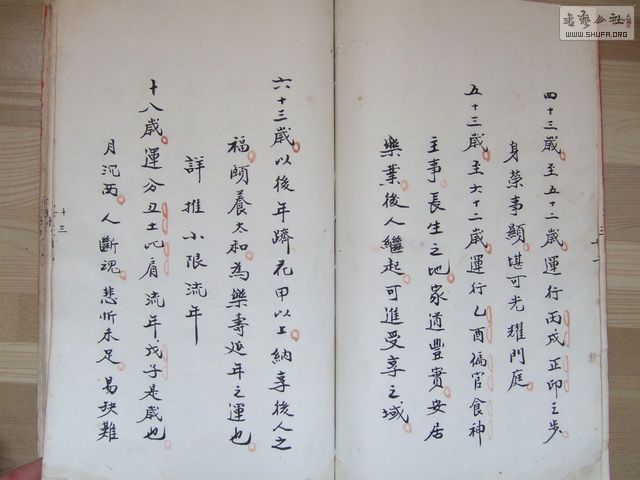 四十三歲至五十二歲運行丙戌正印之步
身榮事顯堪可光耀門庭
五十三歲至六十二歲運行乙酉偏官食神
主事長生之地家道豐實安居
樂業後人繼起可進受享之域
六十三歲以後年躋花甲以上納享後人之
福頤養太和為樂壽延年之運也
詳推小限流年
十八歲運分丑土比肩流年戊子是歲也
月沉西人斷魂悲忻未足易缺難
十三
書藝公社
WWW.SHUFA.ORG